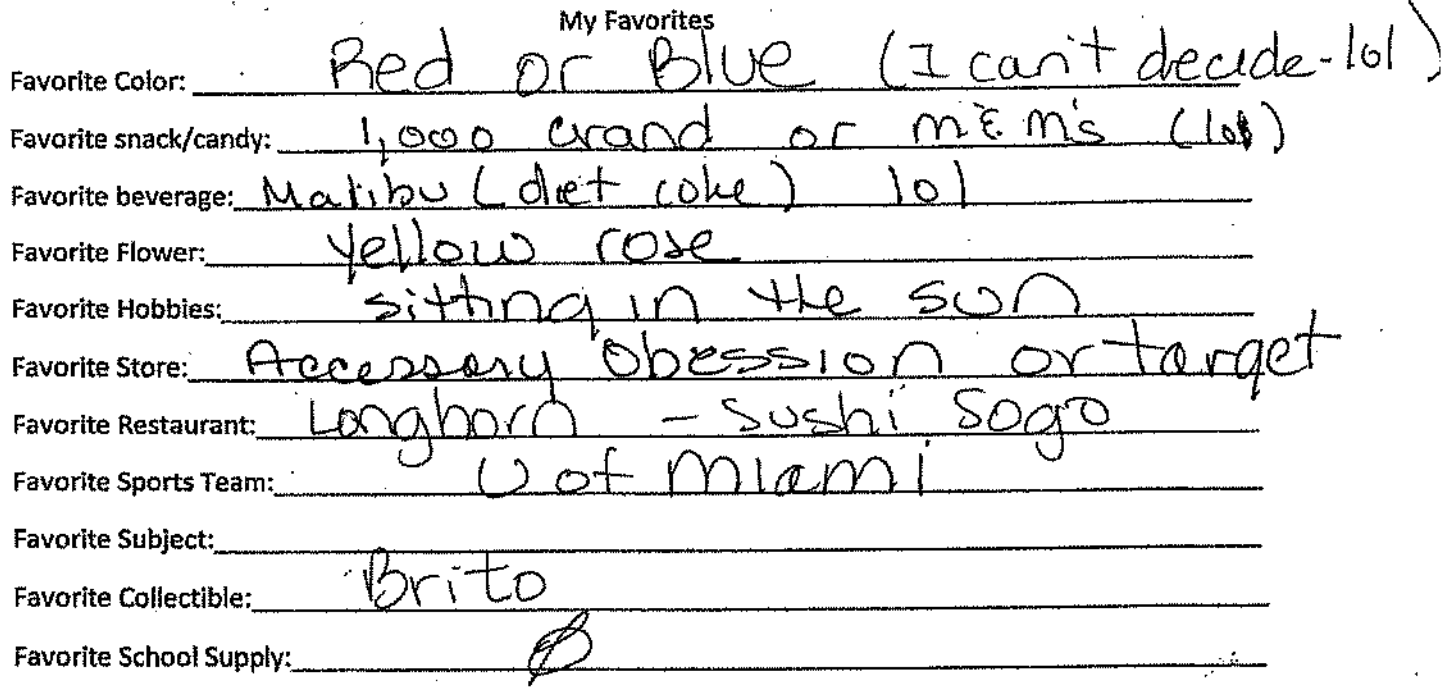 My Favorites
Favorite Color: Red or Blue (I can't decide-lol)
Favorite snack/candy: 1,000 Grand or M&M's (lol)
Favorite beverage: Malibu (diet coke) lol
Favorite Flower: Yellow rose
Favorite Hobbies: sitting in the sun
Favorite Store: Accessory Obession or target
Favorite Restaurant: Longhorn - Sushi Sogo
Favorite Sports Team: U of Miami
Favorite Subject:
Favorite Collectible: Brito
Favorite School Supply: Ø